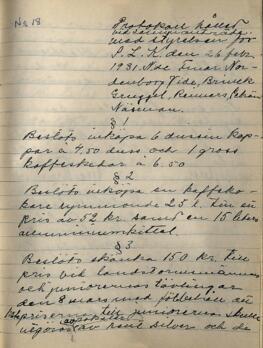 No 18
Protokoll hållet
vid sammanträde
med styrelsen för
S. L. K. den 26 febr.
1931. Nde Einar Nor-
denborg Vide, Brinck
Gruggel, Reimers,
Näsman.
§ 1
Beslöts inköpa 6 dussin kop-
par à 4.50 duss och 1 gross
kaffeskedar à 6.50
§ 2
Beslöts inköpa en kaffeko-
kare rymmande 25 l. till en
pris av 52 kr. samt en 15 liters
aluminiumkittel.
§ 3
Beslöts skänka 150 kr. till
pris vid landstormsmännens
och juniorernas tävlingar
den 8 mars med förbehåll att
1sta priserna till juniorernas skulle
utgöras av rent silver och de